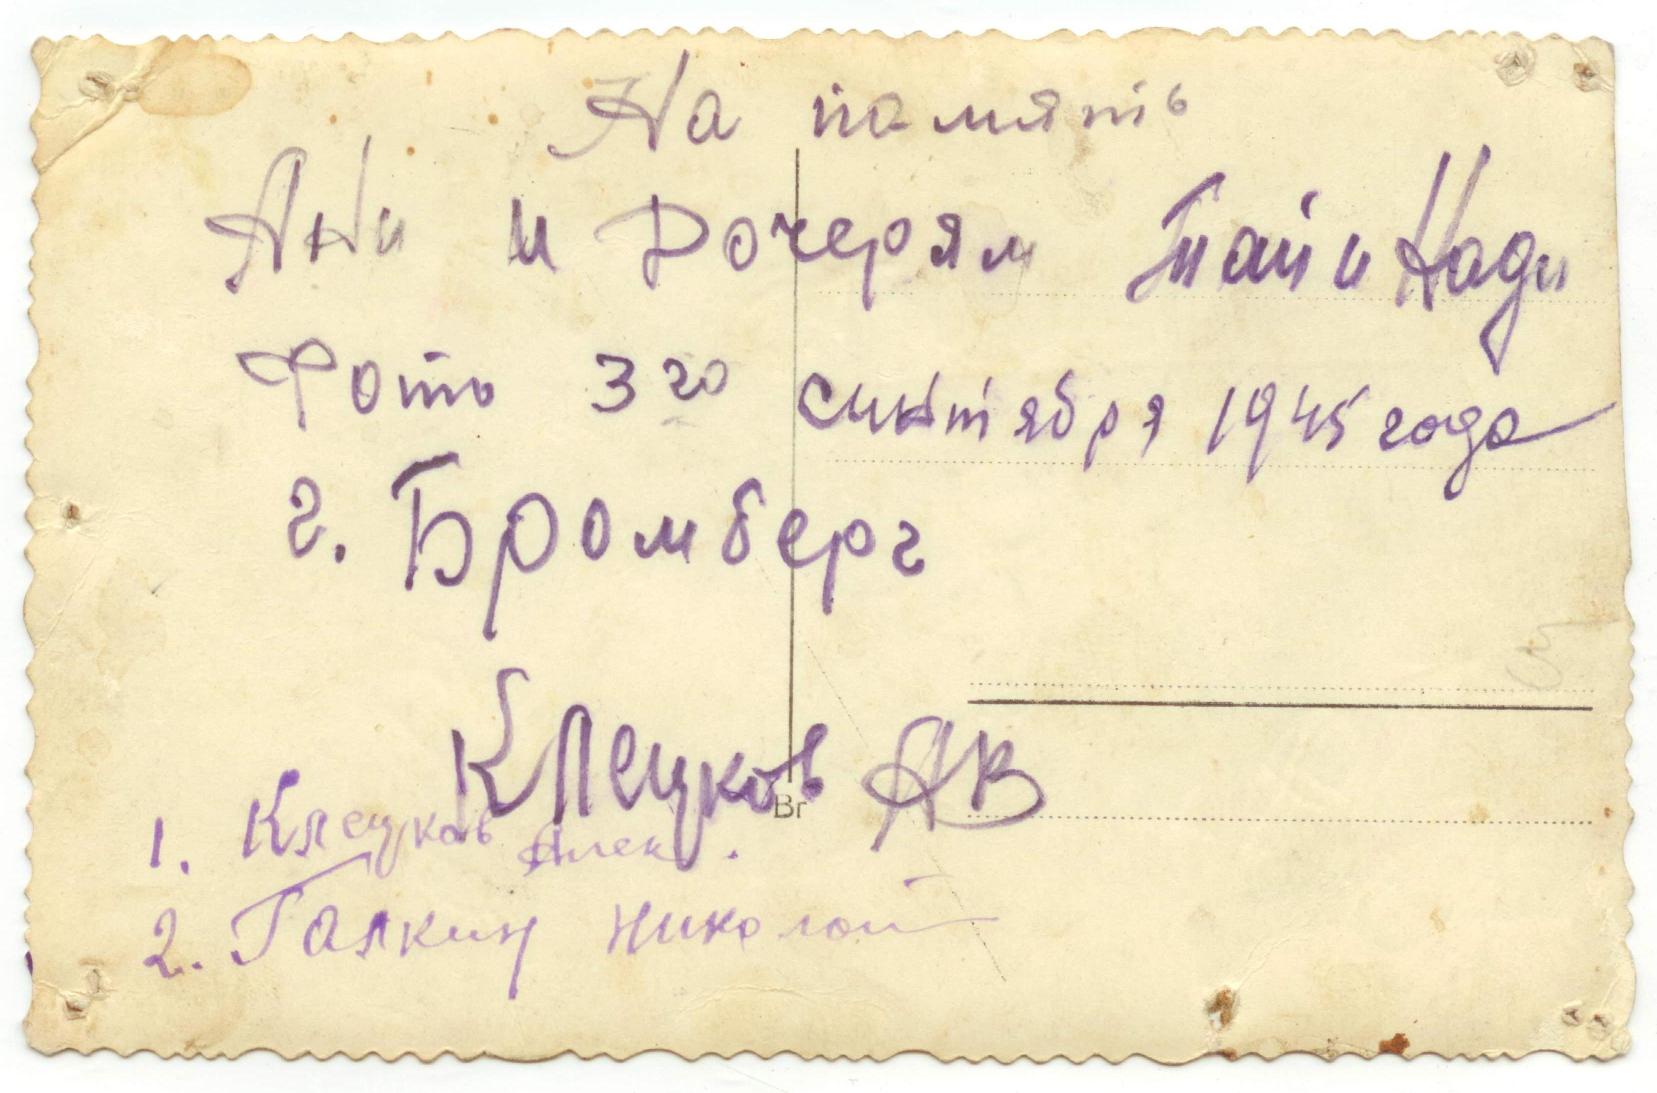 На память
Ани и Дочерям Таи и Нади
Фото 3 го сиктября 1945 года
г. Бромберг
Клецков АВ
Вг
1. Клецков Алек.
2. Галкин Николай